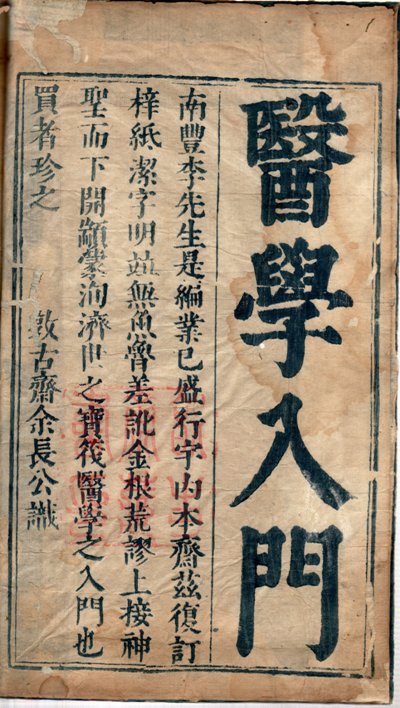 醫學入門
南豐李先生是編業已盛行宇內本齋茲復訂
梓紙潔字明竝無魚魯差訛金根荒謬上接神
聖而下開顓蒙洵濟世之寶筏醫學之入門也
買者珍之
敦古齋余長公識